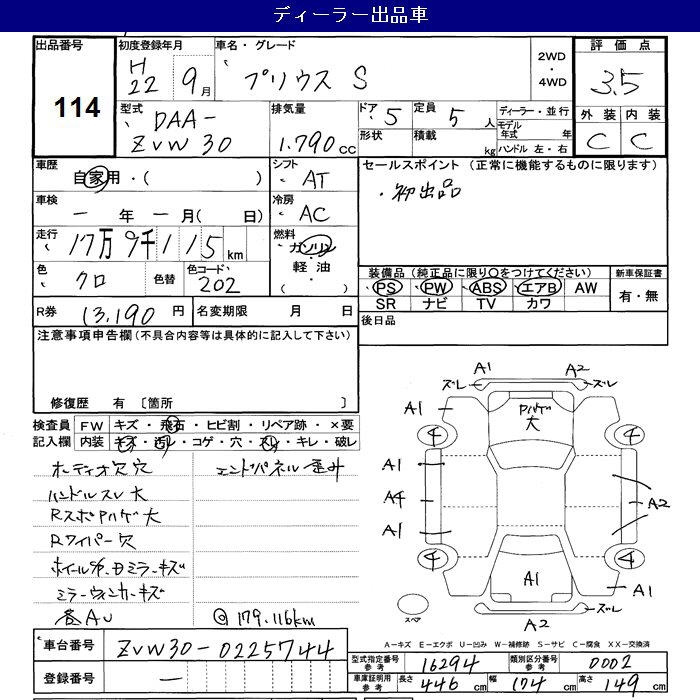 ディーラー出品車
出品番号 114
初度登録年月 H 22 9月
車名・グレード プリウス S
2WD・4WD
評価点 3.5
外装 C 内装 C
型式 DAA-ZVW30
排気量 1.790 cc
ドア 5
定員 5人
形状
積載 kg
ディーラー・並行
モデル年式 年
ハンドル 左・右
車歴 自家用・( )
シフト AT
セールスポイント(正常に機能するものに限ります)
・初出品
車検 ー年ー月( 日)
冷房 AC
走行 17万9千115km
燃料 ガソリン・軽油・( )
色 クロ
色替
色コード 202
装備品(純正品に限り○をつけてください)
PS PW ABS エアB AW
SR ナビ TV カワ
新車保証書 有・無
R券 13.190円
名変期限 月 日
後日品
注意事項申告欄(不具合内容等は具体的に記入して下さい)
修復歴 有〔箇所 〕
検査員記入欄
FW キズ・飛石・ヒビ割・リペア跡・×要
内装 キズ・汚レ・コゲ・穴・スレ・キレ・破レ
オーディオ穴 穴
エンドパネル歪み
ハンドルスレ大
RスポPハゲ大
Rワイパー穴
ミラーウィンカーキズ
各AU
@179.116km
A1 A2
ズレ ズレ
A1
Pハゲ大
4 4
A1
A4
A2
A1
4 4
A1
A1
ズレ
A2
スペア
A-キズ E-エクボ U-凹み W-補修跡 S-サビ C-腐食 XX-交換済
車台番号 ZVW30-0225744
登録番号 ー
型式指定番号参考 16294
類別区分番号参考 0002
車庫証明用参考 長さ 446cm 幅 174cm 高さ 149cm